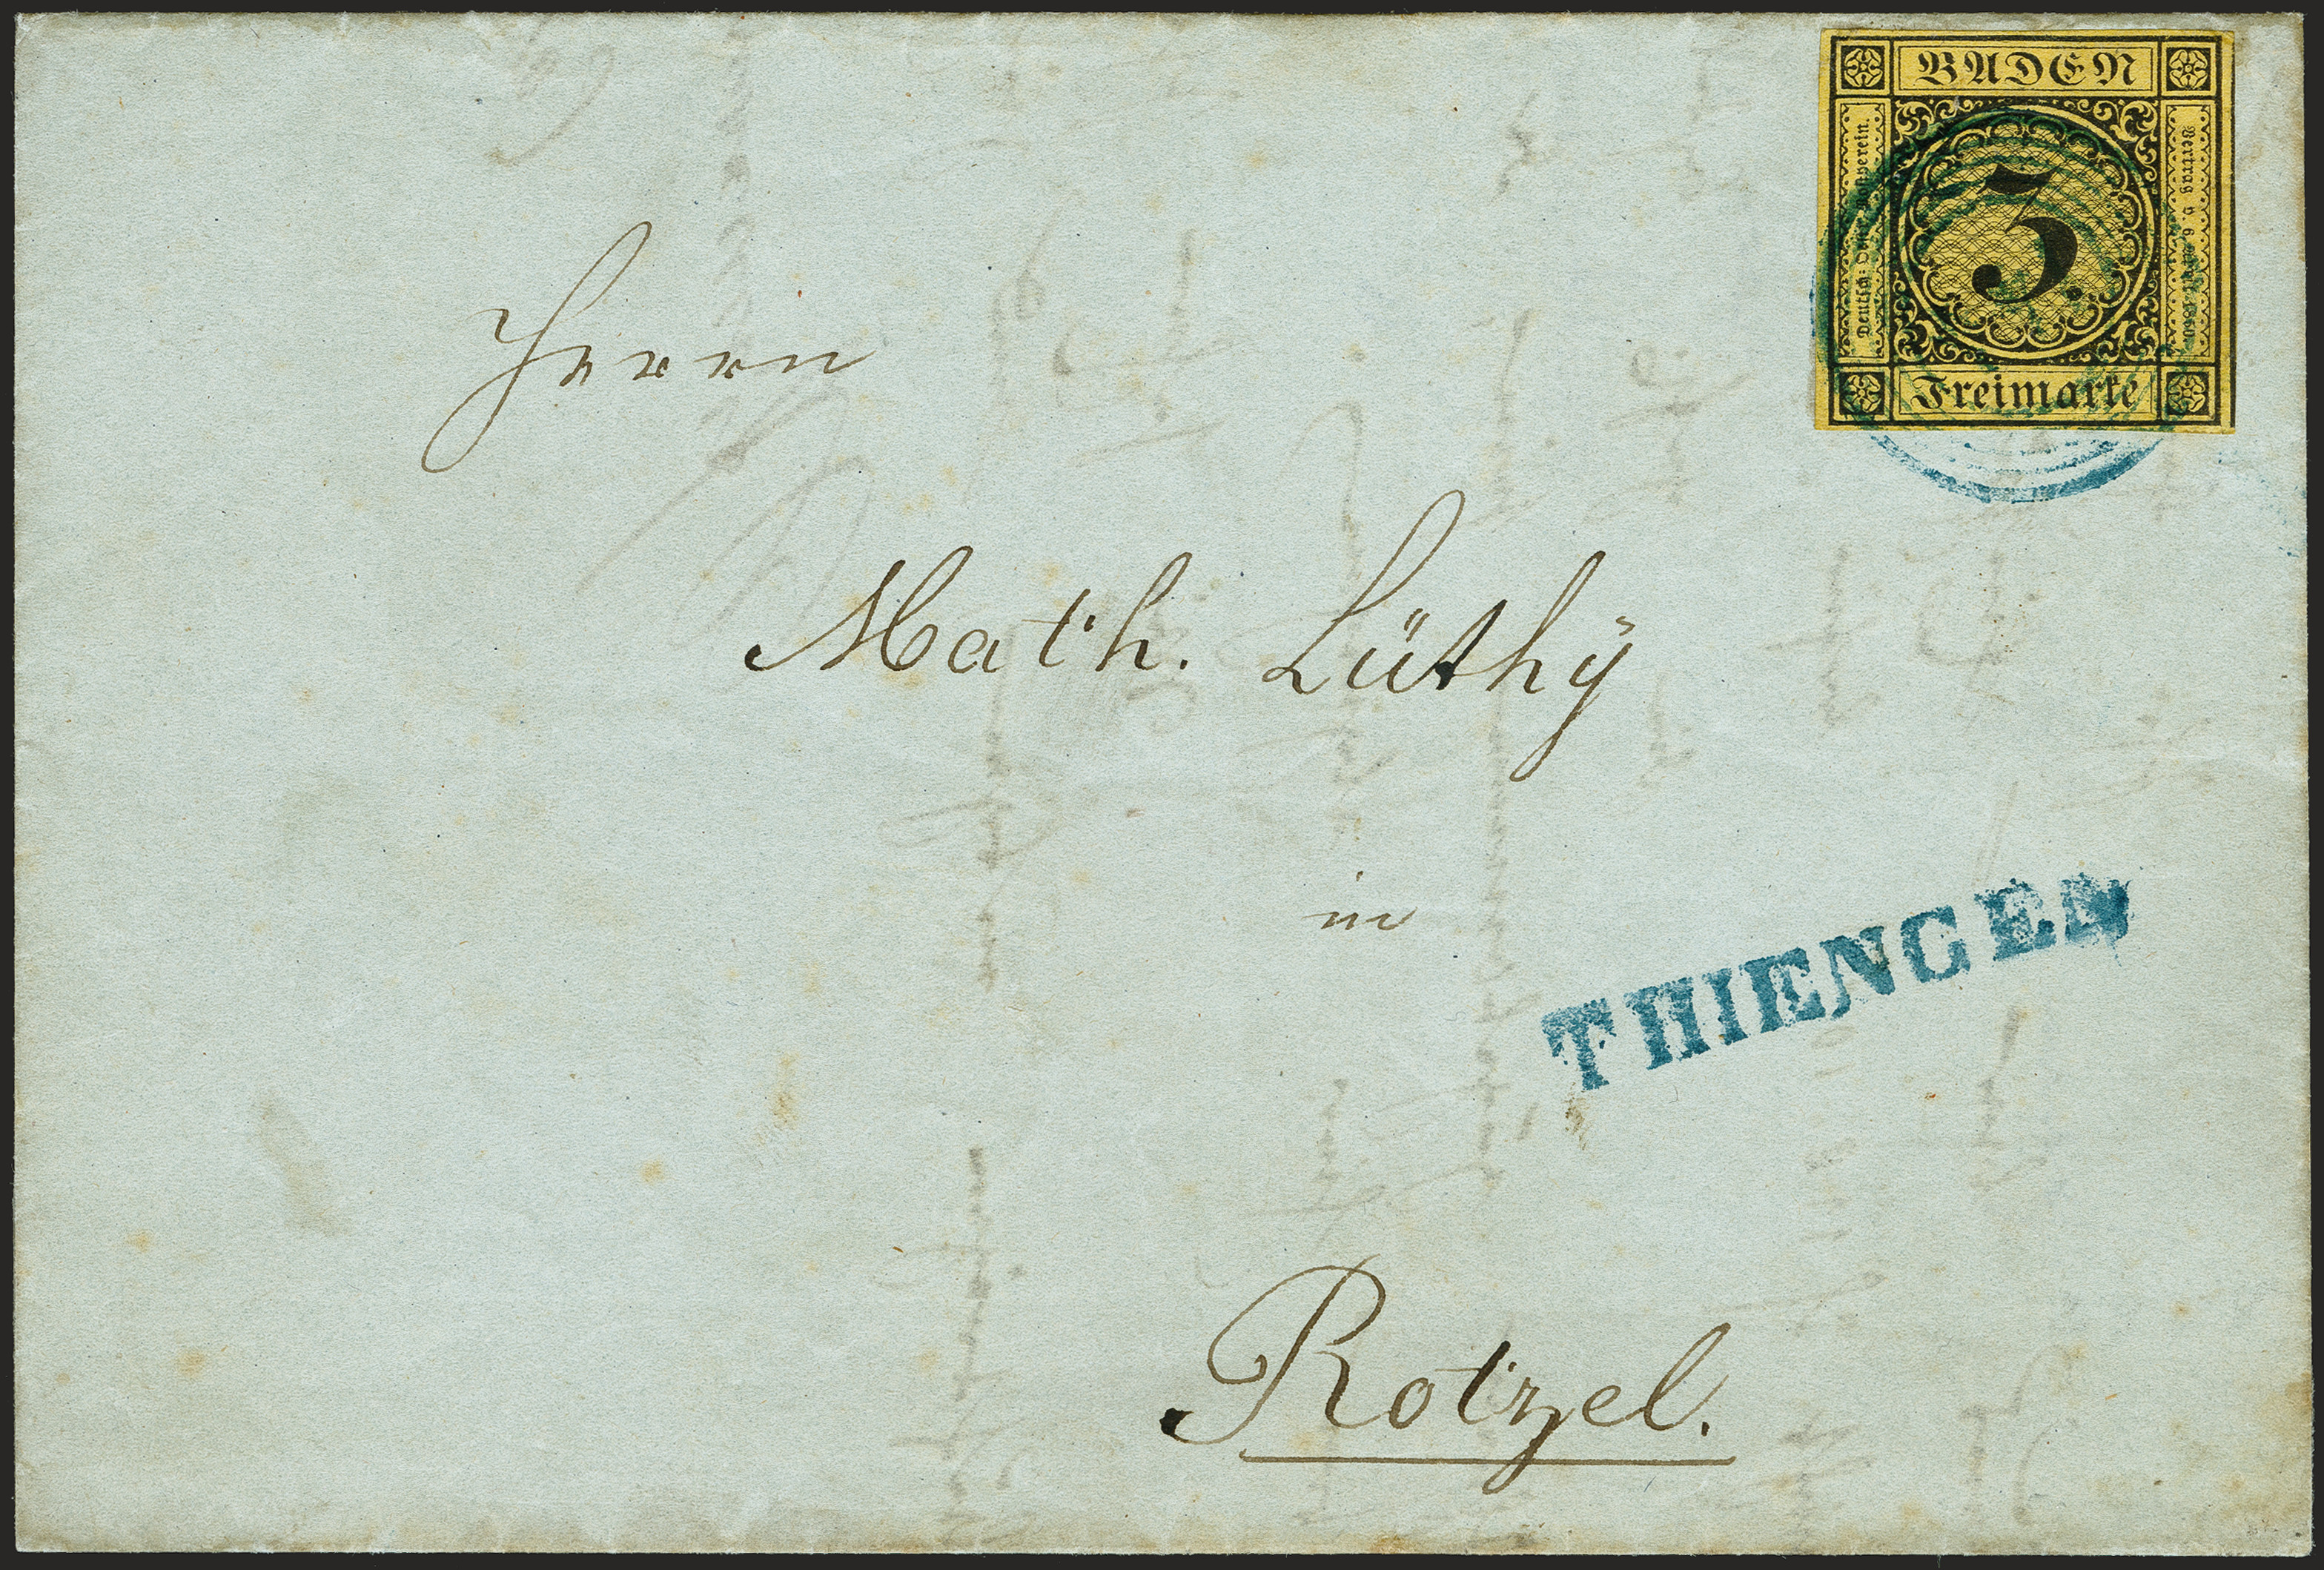 BADEN
Deutsch: Östr: Postverein.
3.
Vertrag v. 6. April 1850
Freimarke
Herrn
Math. Lüthÿ
in
THIENGEN
Rotzel.